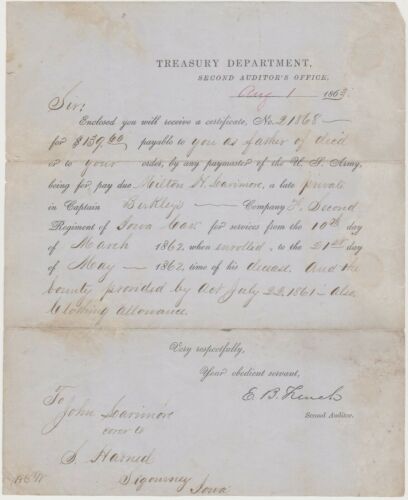 TREASURY DEPARTMENT,
SECOND AUDITOR'S OFFICE,
Aug 1 1863
Sir:
Enclosed you will receive a certificate, No. 21868
for $139.60 payable to you as father of decd
or to your order, by any paymaster of the U. S. Army,
being for pay due Milton H. Larimore, a late private
in Captain Company F, Second
Regiment of Iowa Cav for services from the 10th day
of March 1862, when enrolled, to the 21st day
of May 1862, time of his decease. And the
bounty provided by Act July 22, 1861 – also
Clothing allowance.
Very respectfully,
Your obedient servant,
E. B. French
Second Auditor.
To
John Larimore
care of
S. Harned
Sigourney
Iowa